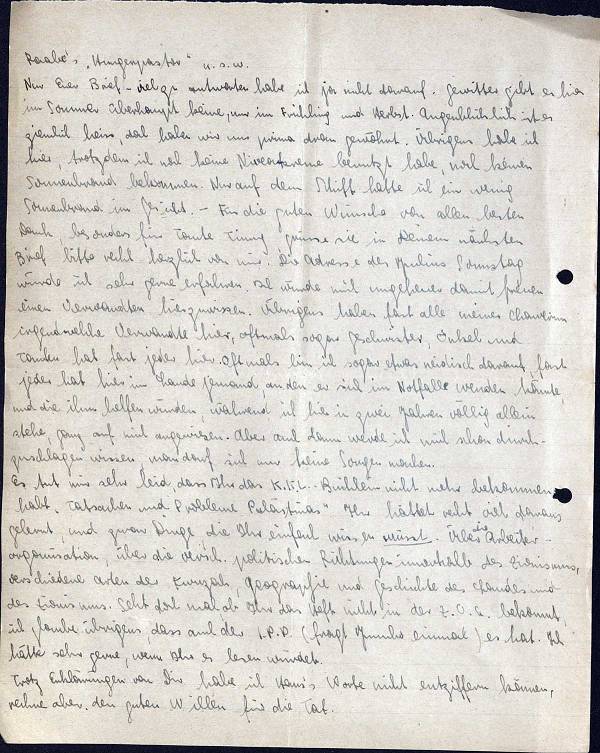 Raabe's „Hungerpastor" u.s.w.
Nun Euer Brief – viel zu antworten habe ich ja nicht darauf. Gewitter gibt es hier
im Sommer überhaupt keine, nur im Frühling und Herbst. Augenblicklich ist es
ziemlich heiss, doch haben wir uns prima daran gewöhnt. Übrigens habe ich
hier, trotzdem ich noch keine Niveacreme benutzt habe, noch keinen
Sonnenbrand bekommen. Nur auf dem Schiff hatte ich ein wenig
Sonnenbrand im Gesicht. – Für die guten Wünsche von allen besten
Dank, besonders für Tante grüsse sie in Deinem nächsten
Brief bitte recht herzlich von mir. Die Adresse des Julius Sonntag
würde ich sehr gerne erfahren. Ich würde mich ungeheuer damit freuen
einen Verwandten hier zu wissen. Übrigens haben fast alle meiner Chawerim
irgendwelche Verwandte hier, oftmals sogar Geschwister, Onkel und
Tanten hat fast jeder hier. Oftmals bin ich sogar etwas neidisch darauf, fast
jeder hat hier im Lande jemand, an den er sich im Notfalle wenden könnte,
und die ihm helfen würden, während ich hier in zwei Jahren völlig allein
stehe, ganz auf mich angewiesen. Aber auch dann werde ich mich schon durch-
zuschlagen wissen, man darf sich nur keine Sorgen machen.
Es tut mir sehr leid, dass Ihr das K.K.L.-Büchlein nicht mehr bekommen
habt. „Tatsachen und Probleme Palästinas" Ihr hättet recht viel daraus
gelernt, und zwar Dinge die Ihr einfach wissen müsst. Über die Arbeiter-
organisation, über die versch. politischen Richtungen innerhalb des Zionismus,
verschiedene Arten der Kwuzah, Geographie und Geschichte des Landes und
des Zionismus. Seht doch mal ob Ihr das Heft nicht in der Z.O.G. bekommt,
ich glaube übrigens, dass auch der J.P.D. (fragt einmal) es hat. Ich
hätte sehr gerne, wenn Ihr es lesen würdet.
Trotz Erklärungen von Dir habe ich Hans's Worte nicht entziffern können,
rechne aber den guten Willen für die Tat.